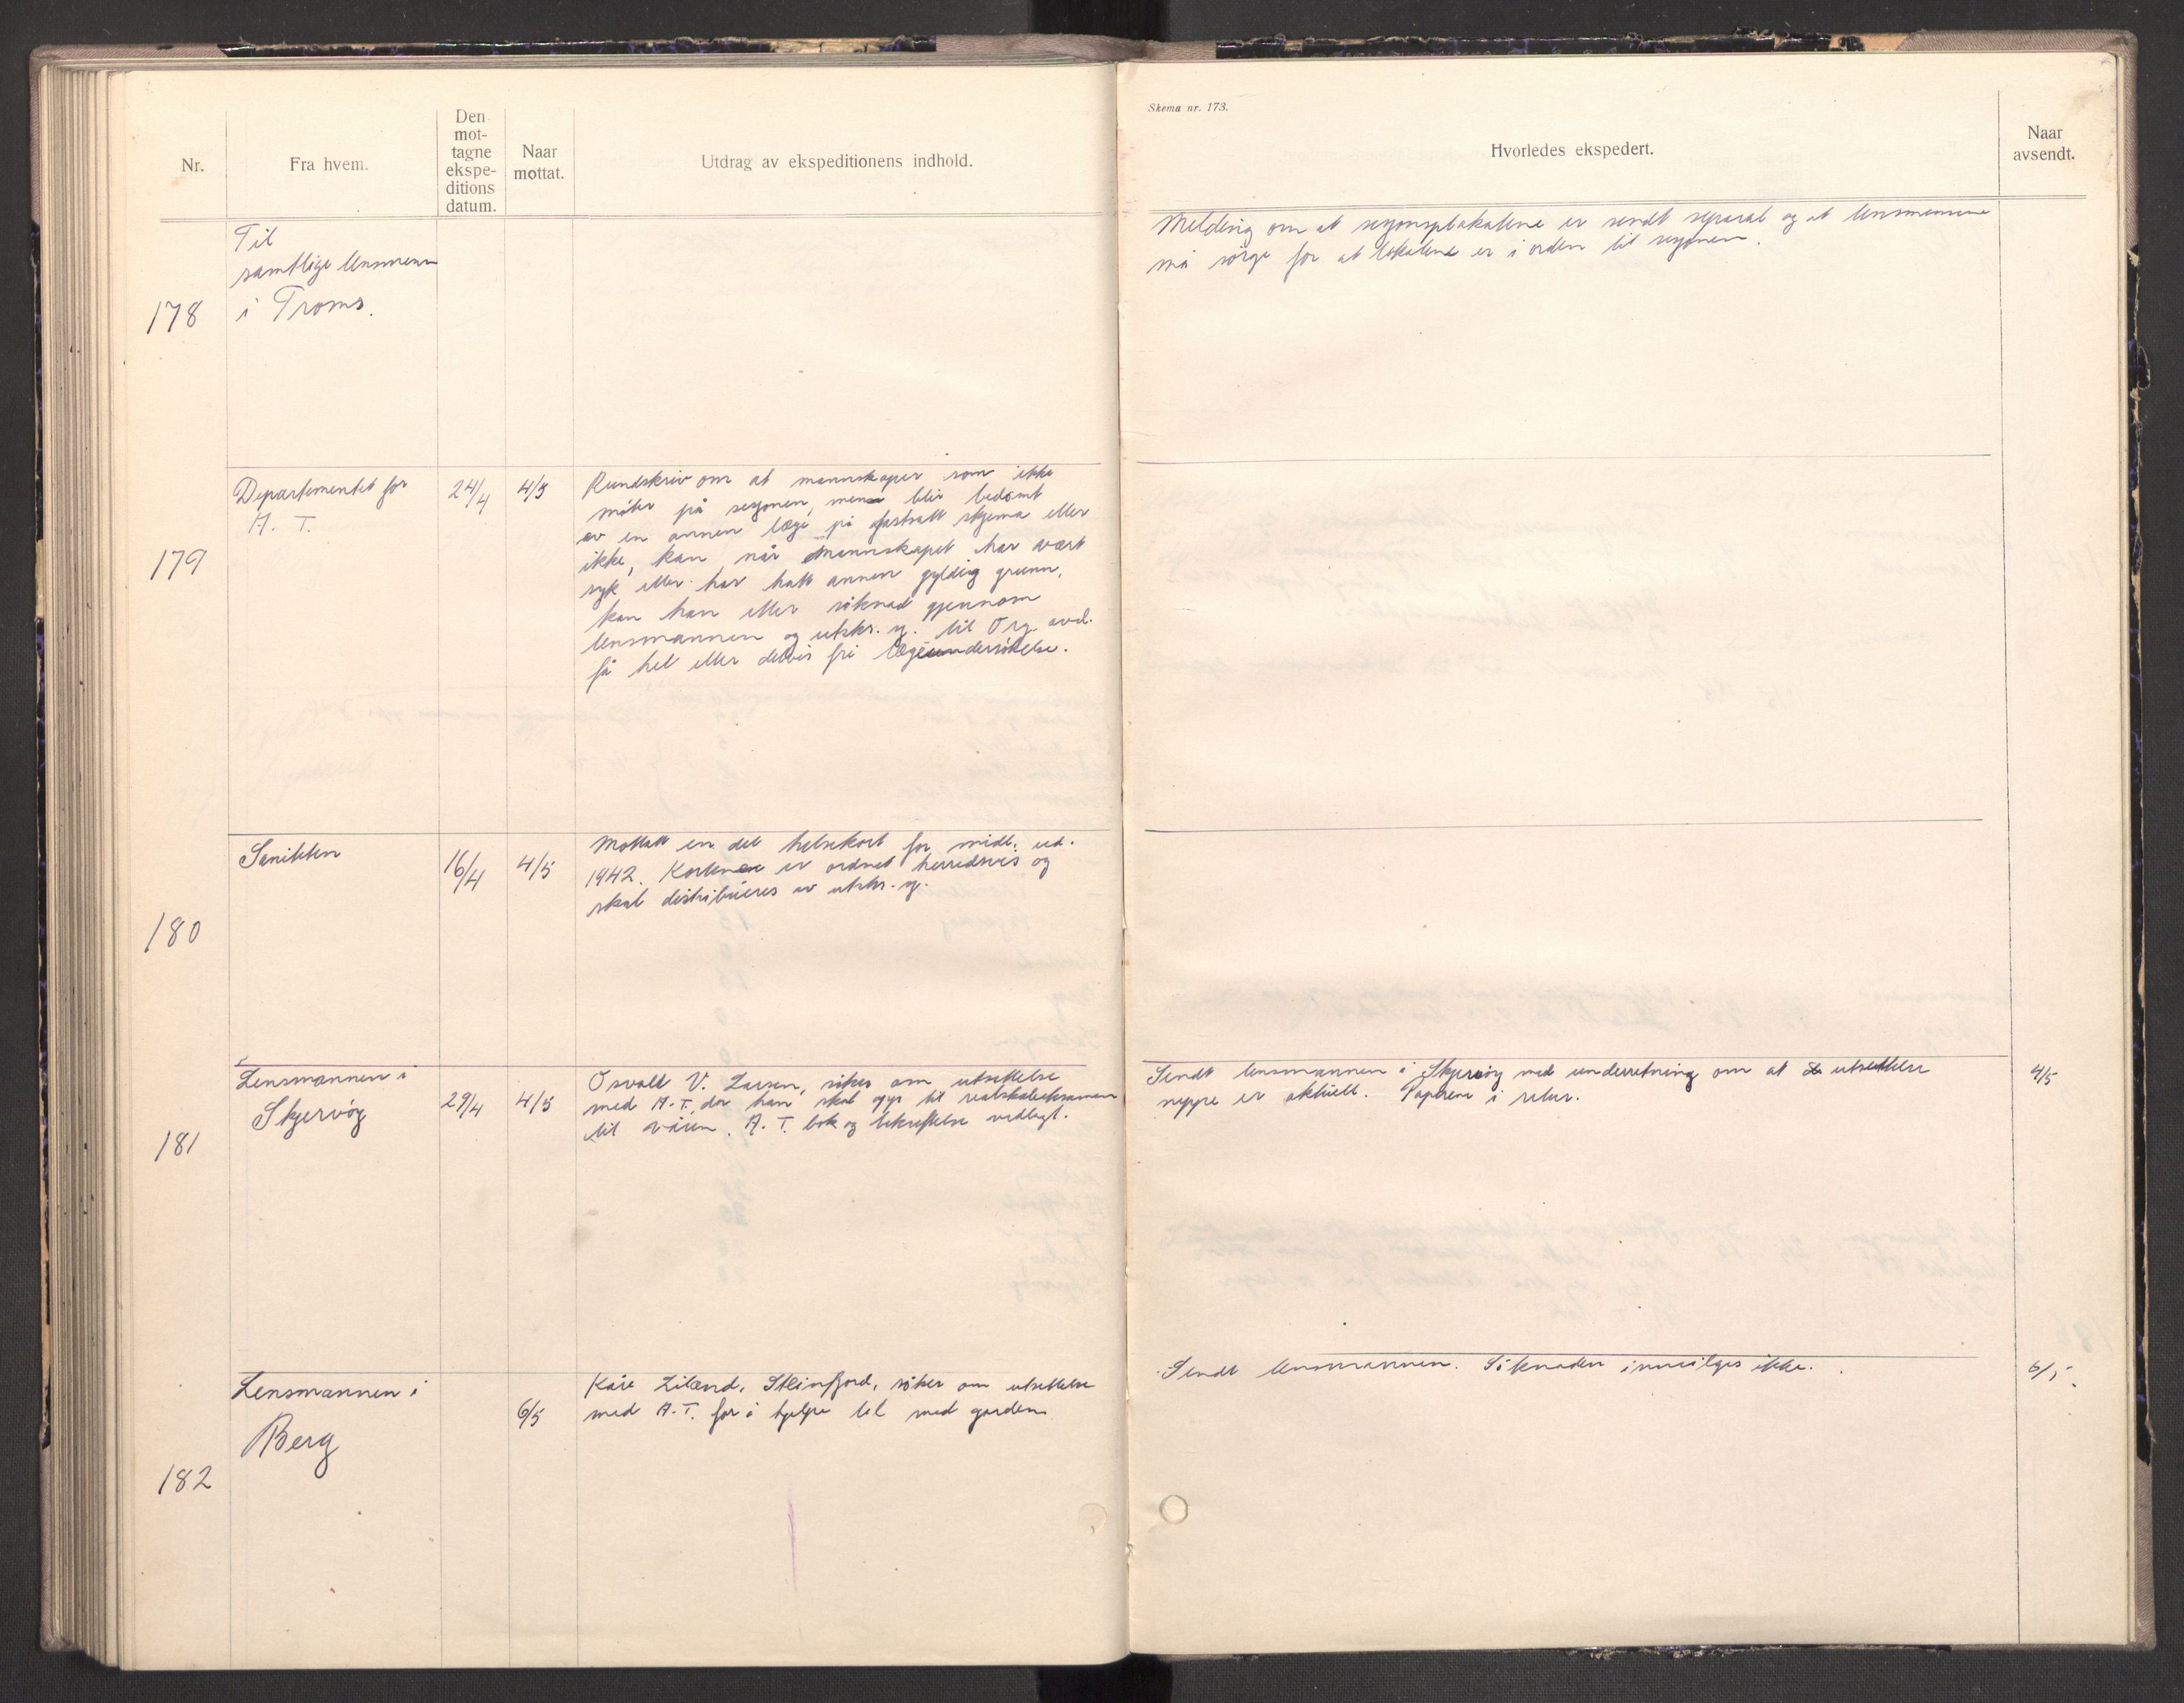 Skema nr. 173.
Nr.
Fra hvem.
Den
mot-
tagne
ekspe-
ditions
datum.
Naar
mottat.
Utdrag av ekspeditionens indhold.
Hvorledes ekspedert.
Naar
avsendt.
178
Til
samtlige lensmenn
i Troms.
Melding om at sesjonsplakatene er sendt separat og at lensmennene
må sörge for at lokalene er i orden til sesjonen.
179
Departementet for
A. T.
24/4
4/5
Rundskriv om at mannskaper som ikke
möter på sesjonen, men blir bedömt
av en annen læge på fastsatt skjema eller
ikke, kan, når mannskapet har vært
syk eller har hatt annen gyldig grunn,
kan han etter söknad gjennom
lensmannen og utskr. sj. til Org. avd.
få hel eller delvis fri lægeundersökelse.
180
Saniteten
16/4
4/5
Mottatt en del helsekort for midl. ud.
1942. Kortene er ordnet herredsvis og
skal distribueres av utskr. sj.
181
Lensmannen i
Skjervöy
29/4
4/5
Osvald V. Larsen, söker om utsettelse
med A. T., da han skal opp til realskoleeksamen
til våren. A. T. bok og bekreftelse vedlagt.
Sendt lensmannen i Skjervöy med underretning om at utsettelse
neppe er aktuell. Papirene i retur.
4/5
182
Lensmannen i
Berg
6/5
Kåre Liland, Steinfjord, söker om utsettelse
med A. T. for å hjelpe til med gården.
Sendt lensmannen. Söknaden innvilges ikke.
6/5